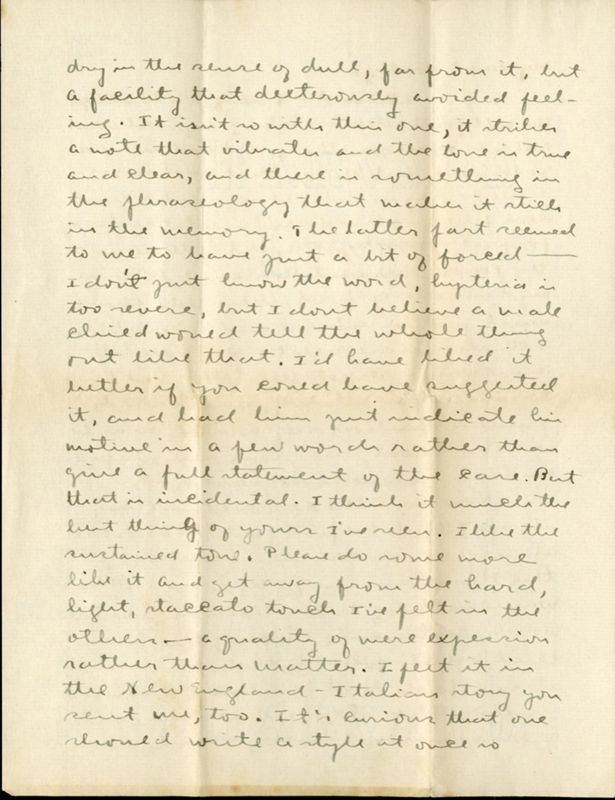 dry in the sense of dull, far from it, but
a facility that dexterously avoided feel-
ing. It isn't so with this one, it strikes
a note that vibrates and the tone is true
and clear, and there is something in
the phraseology that makes it stick
in the memory. The latter part seemed
to me to have just a bit of forced —
I don't just know the word, hysteria is
too severe, but I dont believe a male
child would tell the whole thing
out like that. I'd have liked it
better if you could have suggested
it, and had him just indicate his
motive in a few words rather than
give a full statement of the case. But
that is incidental. I think it much the
best thing of yours I've seen. I like the
sustained tone. Please do some more
like it and get away from the hard,
light, staccato touch I've felt in the
others — a quality of mere expession
rather than matter. I felt it in
the New England - Italian story you
sent me, too. It's curious that one
should write a style at once so